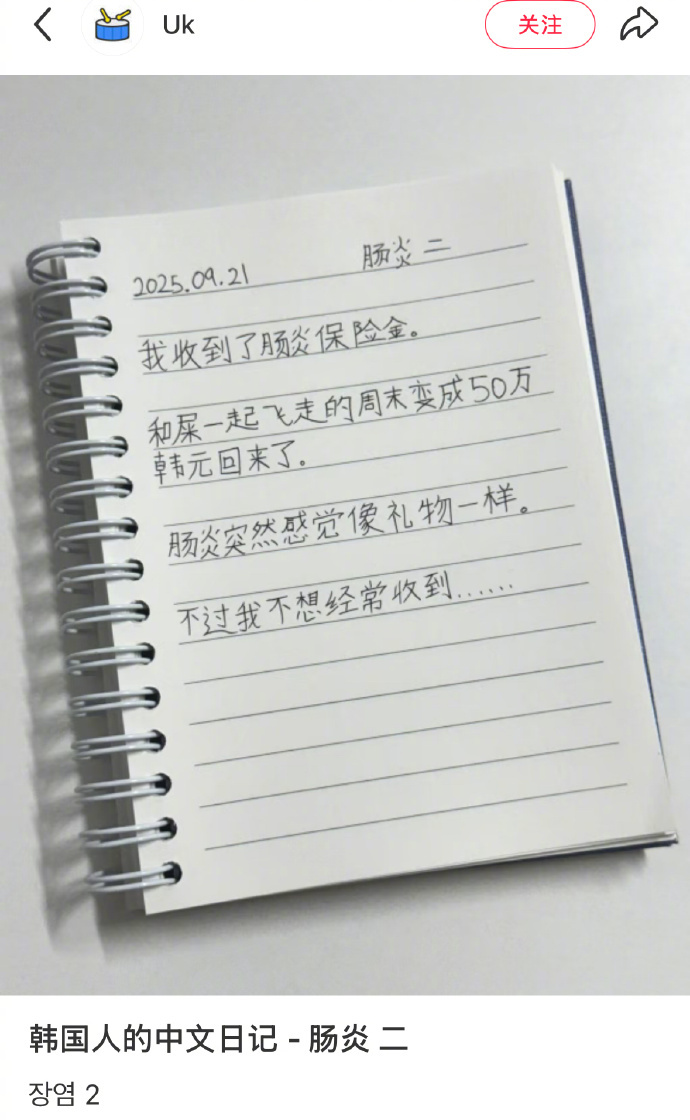 Uk
关注
2025.09.21 肠炎 二
我收到了肠炎保险金。
和屎一起飞走的周末变成50万
韩元回来了。
肠炎突然感觉像礼物一样。
不过我不想经常收到……
韩国人的中文日记 - 肠炎 二
장염 2